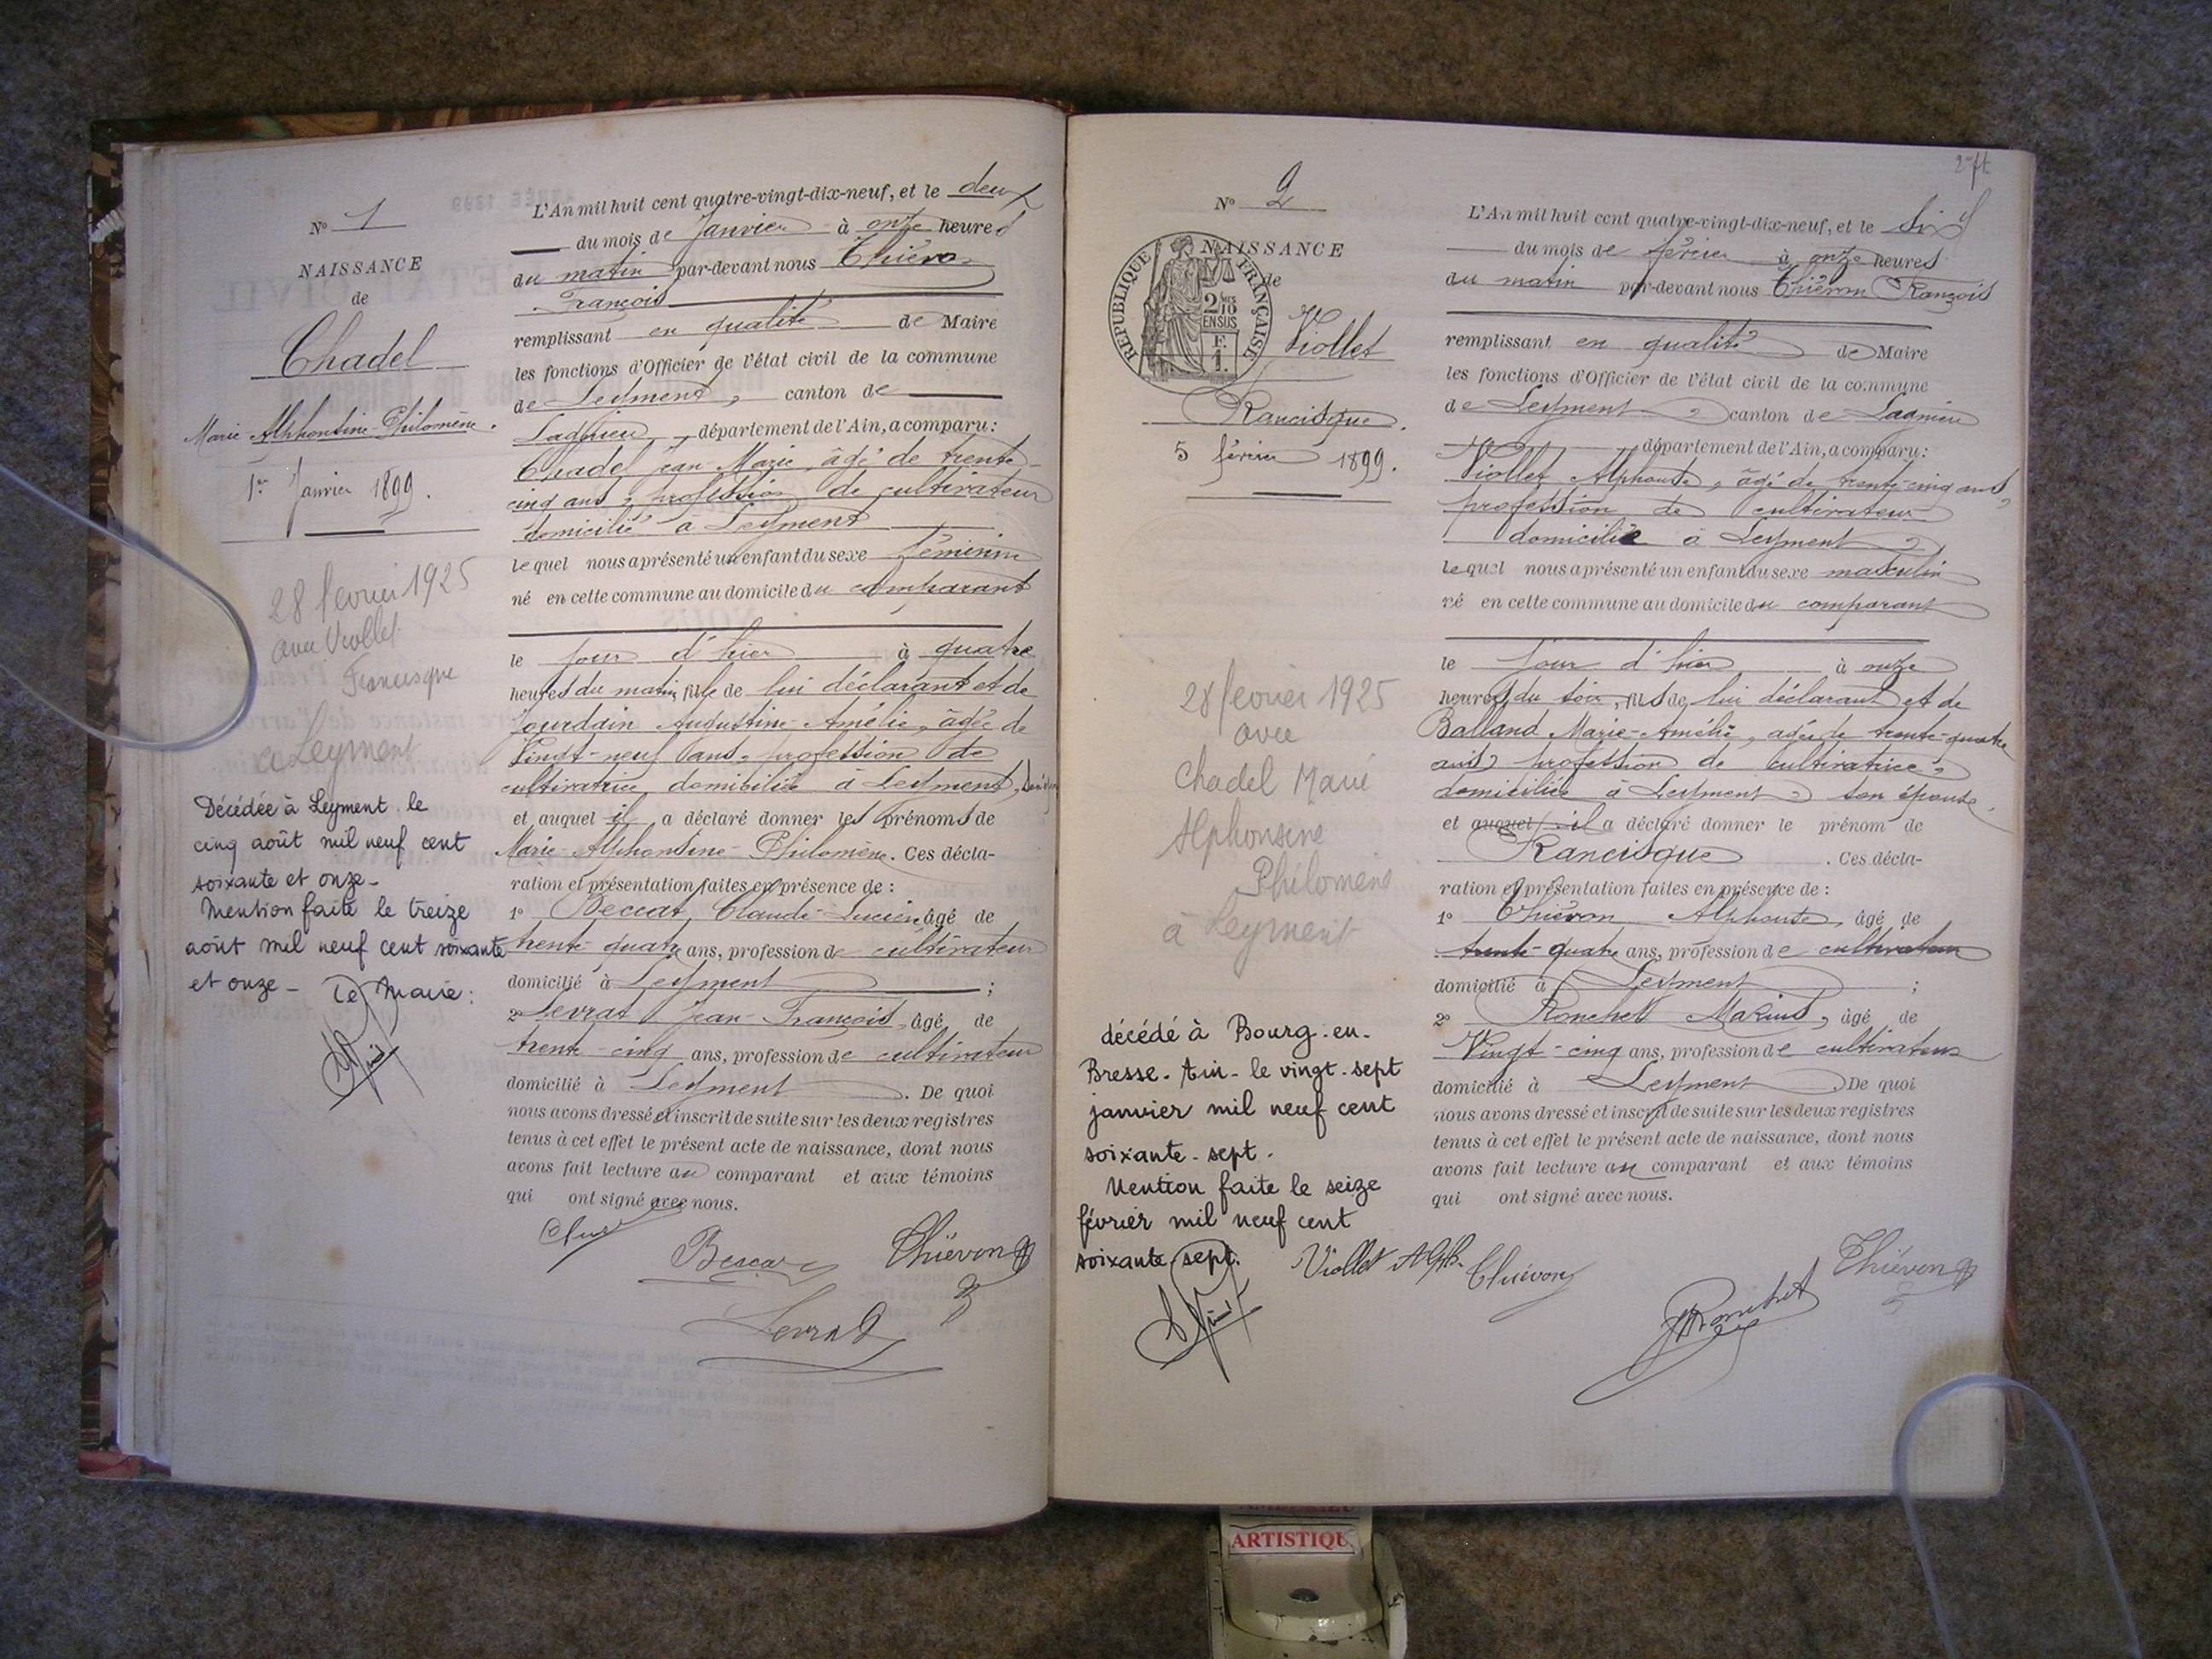 N° 1
NAISSANCE
de
Chadel
Marie Alphonsine Philomène.
1er Janvier 1899.
28 fevrier 1925
avec Viollet
Francisque
a Leyment
Décédée à Leyment le
cinq août mil neuf cent
soixante et onze -
Mention faite le treize
août mil neuf cent soixante
et onze - Le Maire:
L'An mil huit cent quatre-vingt-dix-neuf, et le deux
du mois de Janvier à onze heures
du matin par-devant nous Thiévon
François
remplissant en qualité de Maire
les fonctions d'Officier de l'état civil de la commune
de Leyment, canton de
Lagnieu, département de l'Ain, a comparu:
Chadel Jean Marie, âgé de trente-
cinq ans, profession de cultivateur
domicilié à Leyment
lequel nous a présenté un enfant du sexe féminin
né en cette commune au domicile du comparant
le jour d'hier à quatre
heures du matin, fille de lui déclarant et de
Jourdain Augustine Amélie, âgée de
Vingt-neuf ans, profession de
cultivatrice domiciliée à Leyment,
et auquel il a déclaré donner les prénoms de
Marie-Alphonsine-Philomène. Ces décla-
ration et présentation faites en présence de :
1° Beccat, Claude-Lucien âgé de
trente-quatre ans, profession de cultivateur
domicilié à Leyment ;
2° Levrat Jean-François, âgé de
trente-cinq ans, profession de cultivateur
domicilié à Leyment. De quoi
nous avons dressé et inscrit de suite sur les deux registres
tenus à cet effet le présent acte de naissance, dont nous
avons fait lecture au comparant et aux témoins
qui ont signé avec nous.
Beccat Thiévon
Levrat
2e ft
N° 2
NAISSANCE
de
RÉPUBLIQUE FRANÇAISE
2/10
EN SUS
F.
1.
Viollet
Francisque.
5 février 1899.
28 fevrier 1925
avec
Chadel Marie
Alphonsine
Philomène
à Leyment
décédé à Bourg-en-
Bresse - Ain - le vingt-sept
janvier mil neuf cent
soixante-sept.
Mention faite le seize
février mil neuf cent
soixante sept.
L'An mil huit cent quatre-vingt-dix-neuf, et le Six
du mois de février à onze heures
du matin par-devant nous Thiévon François
remplissant en qualité de Maire
les fonctions d'Officier de l'état civil de la commune
de Leyment, canton de Lagnieu
département de l'Ain, a comparu:
Viollet Alphonse, âgé de trente-cinq ans,
profession de cultivateur
domicilié à Leyment
lequel nous a présenté un enfant du sexe masculin
né en cette commune au domicile du comparant
le jour d'hier à onze
heures du soir, fils de lui déclarant et de
Balland Marie-Amélie, agée de trente-quatre
ans, profession de cultivatrice,
domiciliée à Leyment, son épouse,
et auquel il a déclaré donner le prénom de
Francisque. Ces décla-
ration et présentation faites en présence de :
1° Thiévon Alphonse, âgé de
trente-quatre ans, profession de cultivateur
domicilié à Leyment ;
2° Ronchet Marius, âgé de
Vingt-cinq ans, profession de cultivateur
domicilié à Leyment. De quoi
nous avons dressé et inscrit de suite sur les deux registres
tenus à cet effet le présent acte de naissance, dont nous
avons fait lecture au comparant et aux témoins
qui ont signé avec nous.
Viollet Alph. Thiévon Thiévon
Ronchet
ARTISTIQU